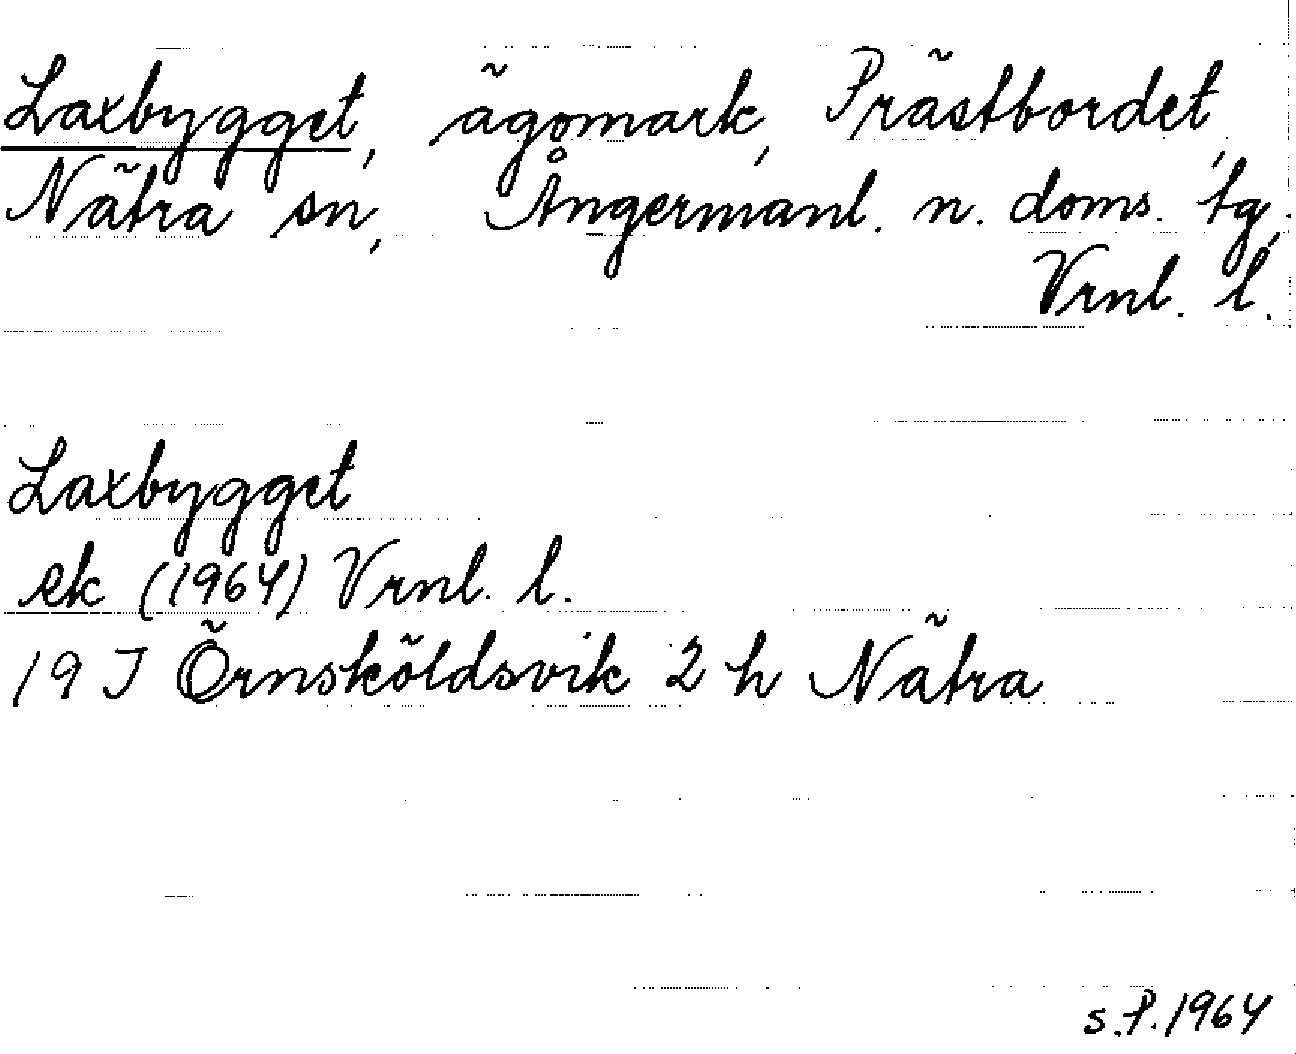 Laxbygget, ägomark, Prästbordet,
Nätra sn, Ångermanl. n. doms. tg,
Vrnl. l.
Laxbygget
ek (1964) Vrnl. l.
19 J Örnsköldsvik 2 h Nätra
s.P.1964